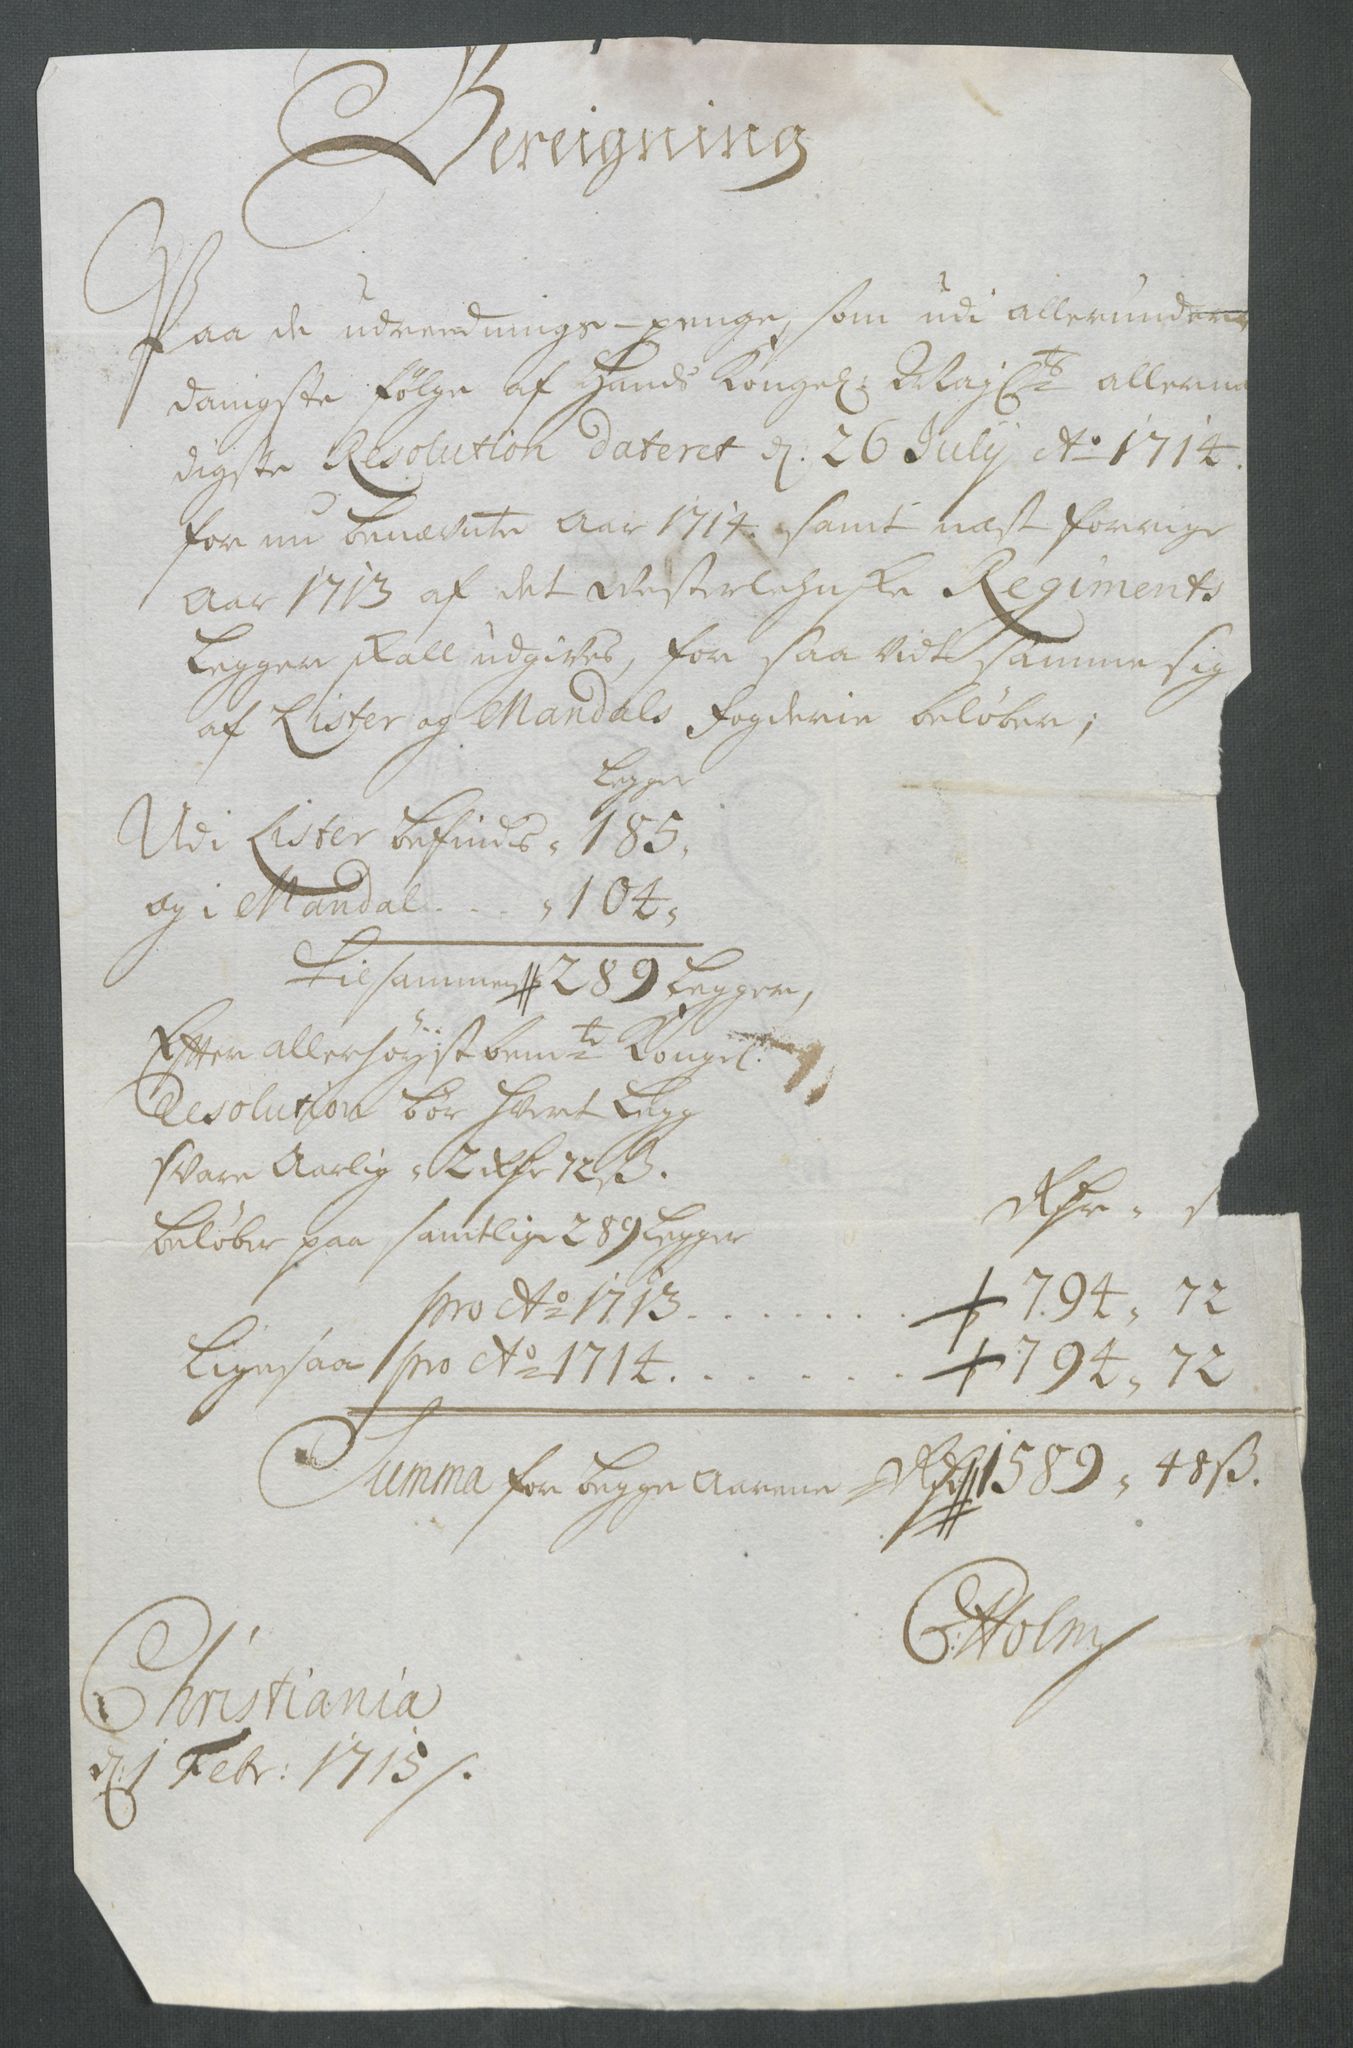 Bereigning
Paa de udreednings-penge, som udi allerunder
danigste følge af Hands Kongel: Maj:ts allerna
digste Resolution dateret d. 26 July Ao 1714.
for nu benævnte Aar 1714. samt næst forrige
Aar 1713 af det Westerlehnske Regiments
Legger skall udgives, for saa vidt samme sig
af Lister og Mandals fogderie beløber;
Legger
Udi Lister befindes „ 185„
og i Mandal . . . „ 104„
tilsammen 289 Legger,
Efter allerhøyst bemte Kongel:
Resolution bør hvert Legg
svare Aarlig „ 2 Rdr 72 ß.
beløber paa samtlige 289 Legger
Rdr „ s
pro Ao 1713 . . . . . . . 794„ 72
Ligesaa pro Ao 1714 . . . . . . . 794„ 72
Summa for begge Aarene Rdr 1589 „ 48 ß.
Holm
Christiania
d. 1 Febr: 1715/.